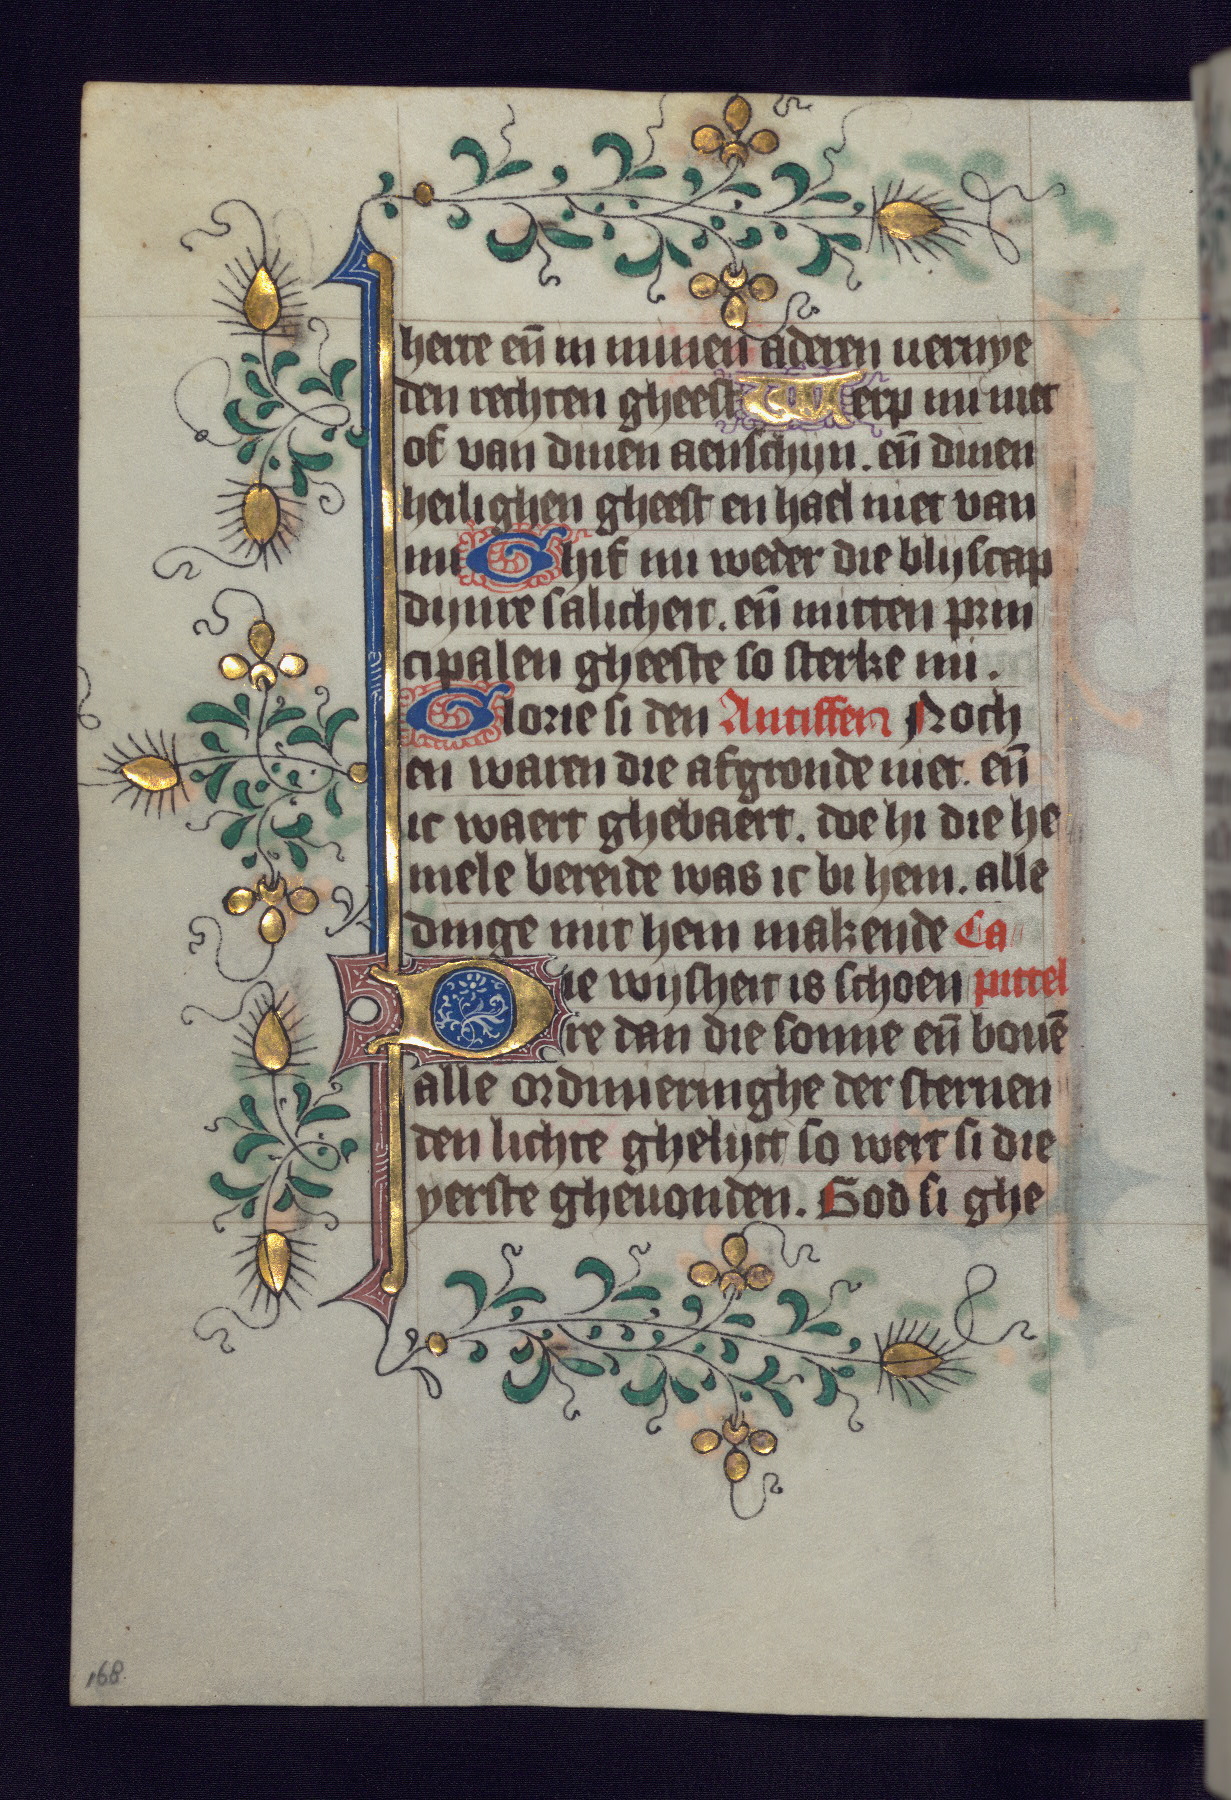 herre en̄ in minen aderen uernye
den rechten gheest Werp mi niet
of van dinen aenschijn. en̄ dinen
heilighen gheest en hael niet van
mi Ghif mi weder die blijscap
dijnre salicheit. en̄ mitten prin
cipalen gheeste so sterke mi.
Glorie si den Antiffen Noch
en waren die afgronde niet. en̄
ic waert ghebaert. doe hi die he
mele bereide was ic bi hem. alle
dinge mit hem makende Ca
Die wijsheit is schoen pittel
re dan die sonne en̄ bouē
alle ordinueringhe der sternen
den lichte ghelijct so wert si die
yerste gheuonden. God si ghe
168.